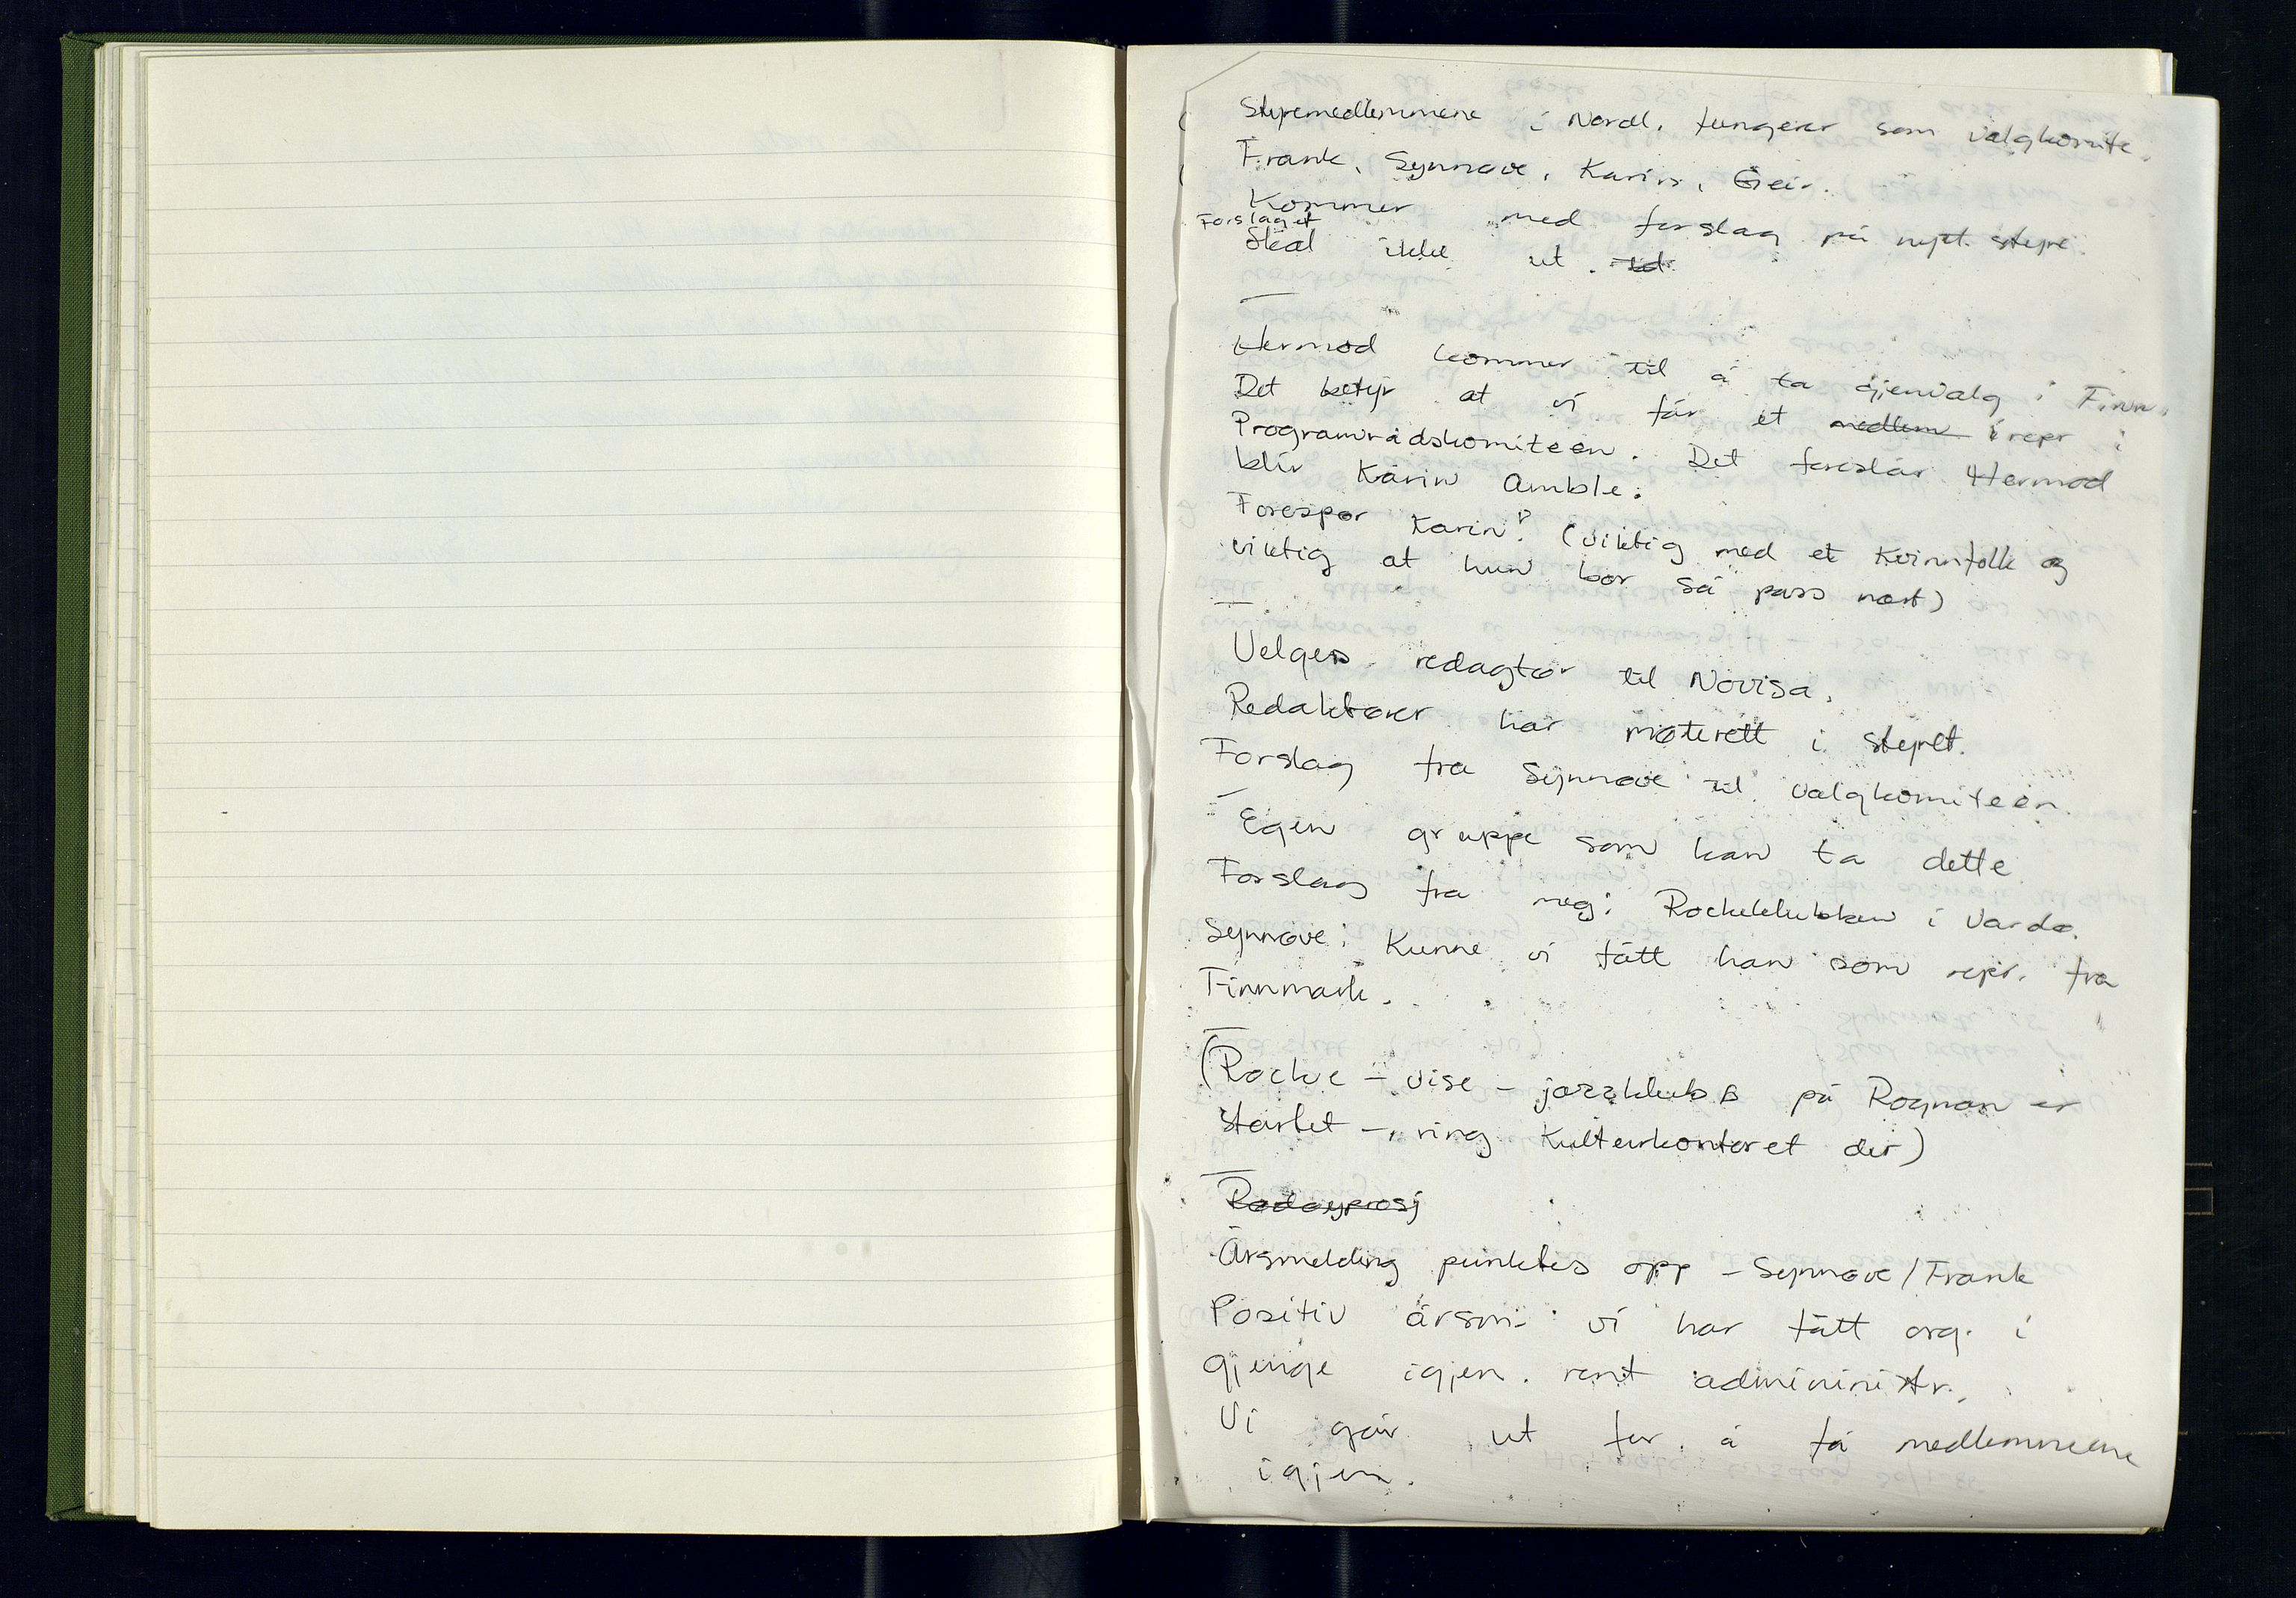 Styremedlemmene i Nordl. fungerer som valgkomite.
Frank, Synnøve, Karin, Geir.
Kommer med forslag på nytt styre.
Forslaget
Skal ikke ut.
Hermod kommer til å ta gjenvalg i Finn.
Det betyr at vi får et medlem repr i
Programrådskomiteen. Det foreslår Hermod
blir Karin Amble.
Forespør Karin? (viktig med et kvinnfolk og
viktig at hun bor så pass nært)
Velges redagtør til Novisa.
Redaktører har møterett i styret.
Forslag fra Synnøve til valgkomiteen.
Egen gruppe som kan ta dette
Forslag fra meg: Rockeklubben i Vardø.
Synnøve: Kunne vi fått han som repr. fra
Finnmark.
(Rocke - vise - jazzklubb på Rognan er
startet - ring Kulturkontoret der)
Radøyprosj
Årsmelding punktes opp - Synnøve/Frank
Positiv årsm: vi har fått org. i
gjenge igjen. rent admininistr.
Vi går ut for å få medlemmene
igjen.